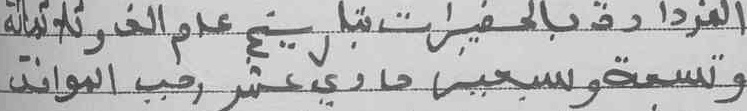 بالحفيرات بتاريخ عام الف وثلاثمائة
وتسعة وسبعين حادي عشر رجب الموافق